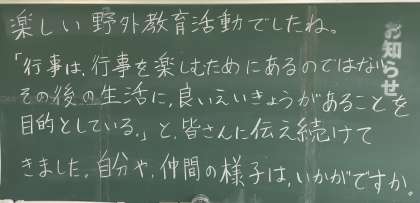 楽しい野外教育活動でしたね。
「行事は、行事を楽しむためにあるのではない
その後の生活に、良いえいきょうがあることを
目的としている。」と、皆さんに伝え続けて
きました。自分や、仲間の様子は、いかがですか。
お知らせ